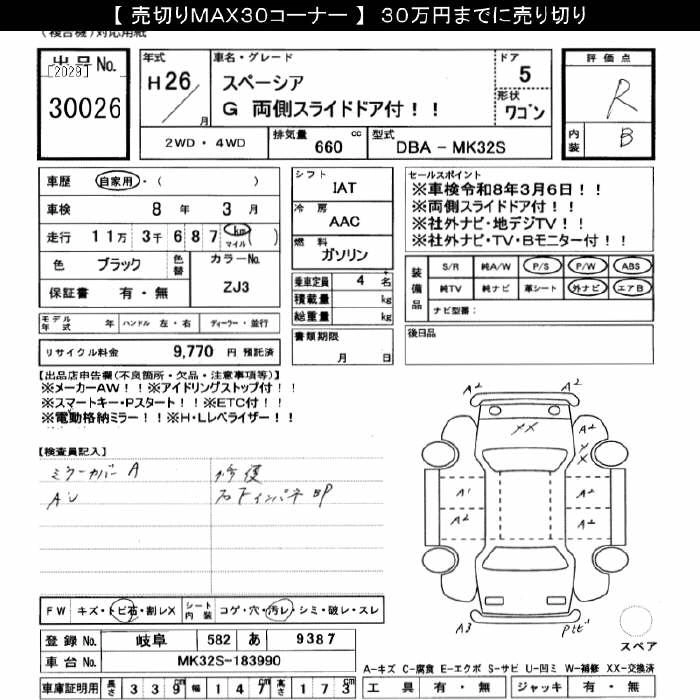 【 売切りMAX30コーナー 】 30万円までに売り切り
(複合機)対応用紙
出品No.
[2029]
30026
年式
H26/
月
車名・グレード
スペーシア
G 両側スライドドア付！！
ドア
5
形状
ワゴン
評価点
R
内装
B
2WD・4WD
排気量
660 cc
型式
DBA - MK32S
車歴 自家用・( )
車検 8年 3月
走行 11万 3千 687 km マイル ( )
色 ブラック 色替
カラーNo.
ZJ3
保証書 有・無
シフト
IAT
冷房
AAC
燃料
ガソリン
乗車定員 4 名
積載量 kg
総重量 kg
書類期限
月 日
セールスポイント
※車検令和8年3月6日！！
※両側スライドドア付！！
※社外ナビ・地デジTV！！
※社外ナビ・TV・Bモニター付！！
装備品
S/R 純A/W P/S P/W ABS
純TV 純ナビ 革シート 外ナビ エアB
ナビ型番:
後日品
モデル年式 年 ハンドル 左・右 ディーラー・並行
リサイクル料金 9,770 円 預託済
【出品店申告欄(不良箇所・欠品・注意事項等)】
※メーカーAW！！※アイドリングストップ付！！
※スマートキー・Pスタート！！※ETC付！！
※電動格納ミラー！！※H・Lレベライザー！！
【検査員記入】
ミラーカバー A
AU
修復
右Fインパネ BP
A2 A2
XX
A2
Y
X
A1 A2
A2 A2
A3
スペア
FW キズ・トビ石・割レX
シート内装 コゲ・穴・汚レ・シミ・破レ・スレ
登録No. 岐阜 582 あ 9387
車台No. MK32S-183990
車庫証明用 長さ 339cm 幅 147cm 高さ 173cm
A-キズ C-腐食 E-エクボ S-サビ U-凹ミ W-補修 XX-交換済
工具 有・無 ジャッキ 有・無